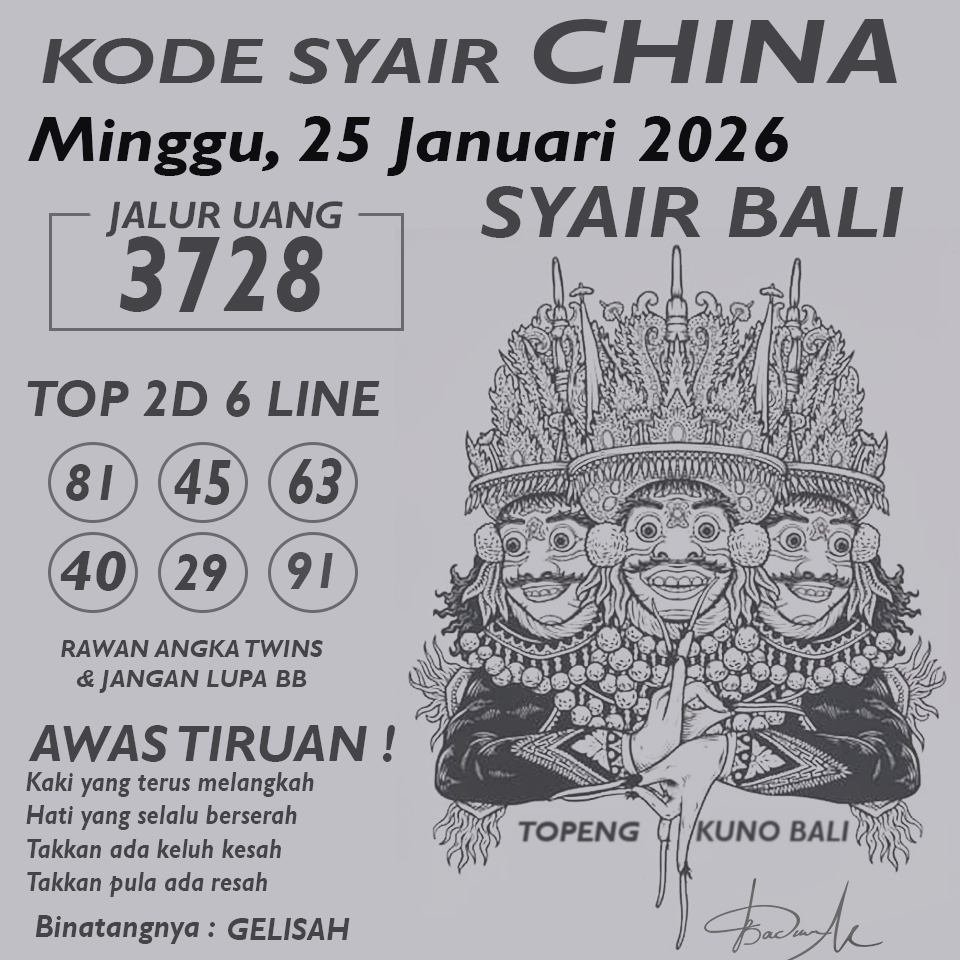 KODE SYAIR CHINA
Minggu, 25 Januari 2026
SYAIR BALI
JALUR UANG
3728
TOP 2D 6 LINE
81 45 63
40 29 91
RAWAN ANGKA TWINS
& JANGAN LUPA BB
AWAS TIRUAN !
Kaki yang terus melangkah
Hati yang selalu berserah
Takkan ada keluh kesah
Takkan pula ada resah
Binatangnya : GELISAH
TOPENG KUNO BALI